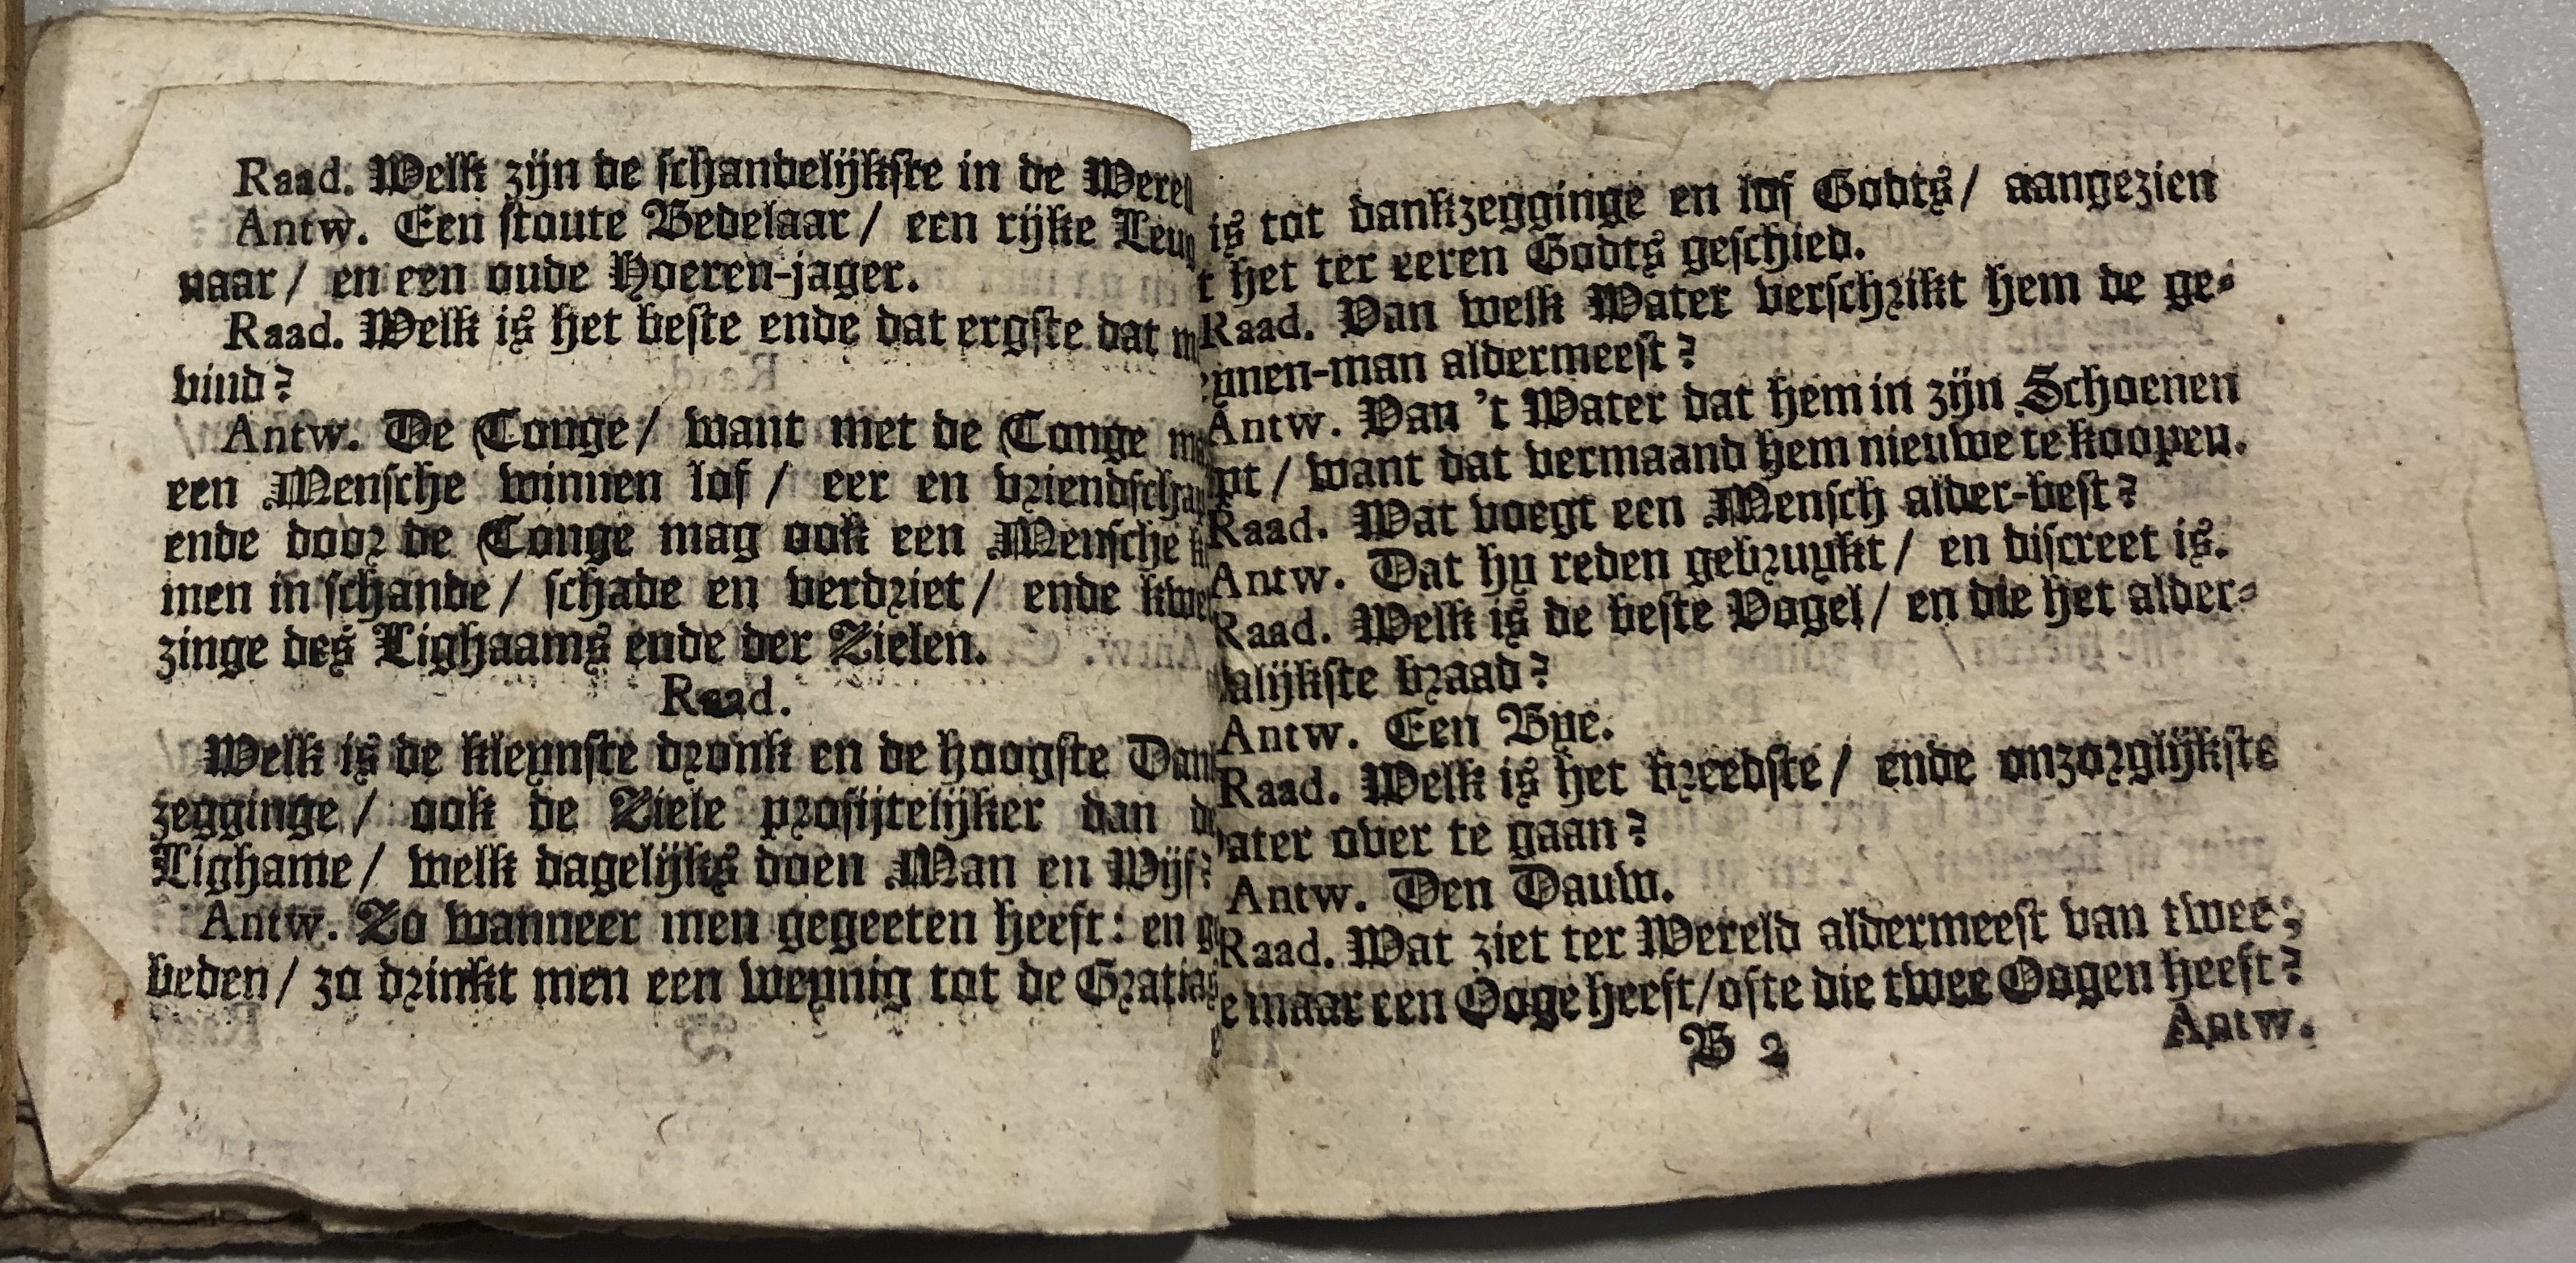 Raad. Welk zijn de schandelijkste in de Werel
Antw. Een stoute Bedelaar / een rijke Leug
naar / en een oude Hoeren-jager.
Raad. Welk is het beste ende dat ergste dat m
vind?
Antw. De Tonge / want met de Tonge m
een Mensche winnen lof / eer en vriendschap
ende door de Tonge mag ook een Mensche k
men in schande / schade en verdriet / ende kwel
zinge des Lighaams ende der Zielen.
Raad.
Welk is de kleynste dronk en de hoogste Dank
zegginge / ook de Ziele profijtelijker dan d
Lighame / welk dagelijks doen Man en Wijf?
Antw. Zo wanneer men gegeeten heeft: en g
beden / zo drinkt men een weynig tot de Gratias
is tot dankzegginge en lof Godts / aangezien
t het ter eeren Godts geschied.
Raad. Van welk Water verschrikt hem de ge-
ynen-man aldermeest?
Antw. Van 't Water dat hem in zijn Schoenen
mt / want dat vermaand hem nieuwe te koopen.
Raad. Wat voegt een Mensch alder-best?
Antw. Dat hy reden gebruykt / en discreet is.
Raad. Welk is de beste Vogel / en die het alder-
alijkste braad?
Antw. Een Bye.
Raad. Welk is het breedste / ende onzorglijkste
ater over te gaan?
Antw. Den Dauw.
Raad. Wat ziet ter Wereld aldermeest van twee;
e maar een Ooge heeft / ofte die twee Oogen heeft?
B 2 Antw.